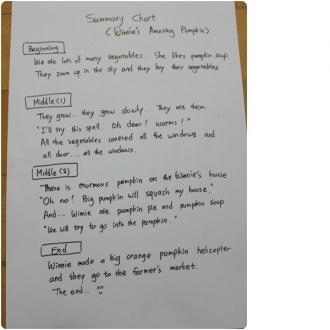 Summary Chart
(Winnie's Amazing Pumpkin)
Beginning
We ate lots of many vegetables. She likes pumpkin soup.
They zoom up in the sky and they buy their vegetables
Middle(1)
They grow... they grow slowly. They ate them.
"I'll try this spell. Oh dear! Worms!"
All the vegetables covered all the windows and
all door.... all the windows.
Middle(2)
There is enormous pumpkin on the Winnie's house
"Oh no! Big pumpkin will squash my house."
And... Winnie ate pumpkin pie and pumpkin soup
"We will try to go into the pumpkin."
End
Winnie made a big orange pumpkin helicopter
and they go to the farmer's market.
The end...